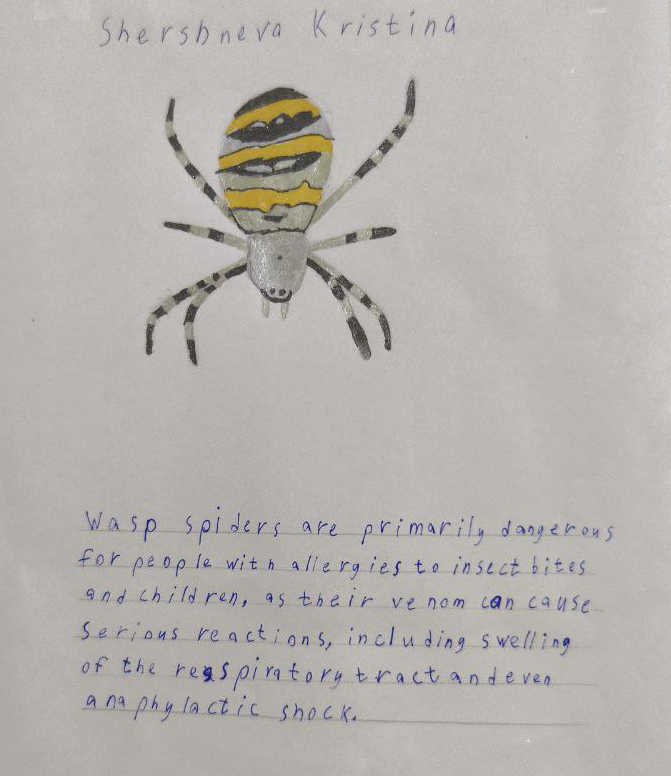 Shershneva Kristina
Wasp spiders are primarily dangerous
for people with allergies to insect bites
and children, as their venom can cause
serious reactions, including swelling
of the respiratory tract and even
anaphylactic shock.